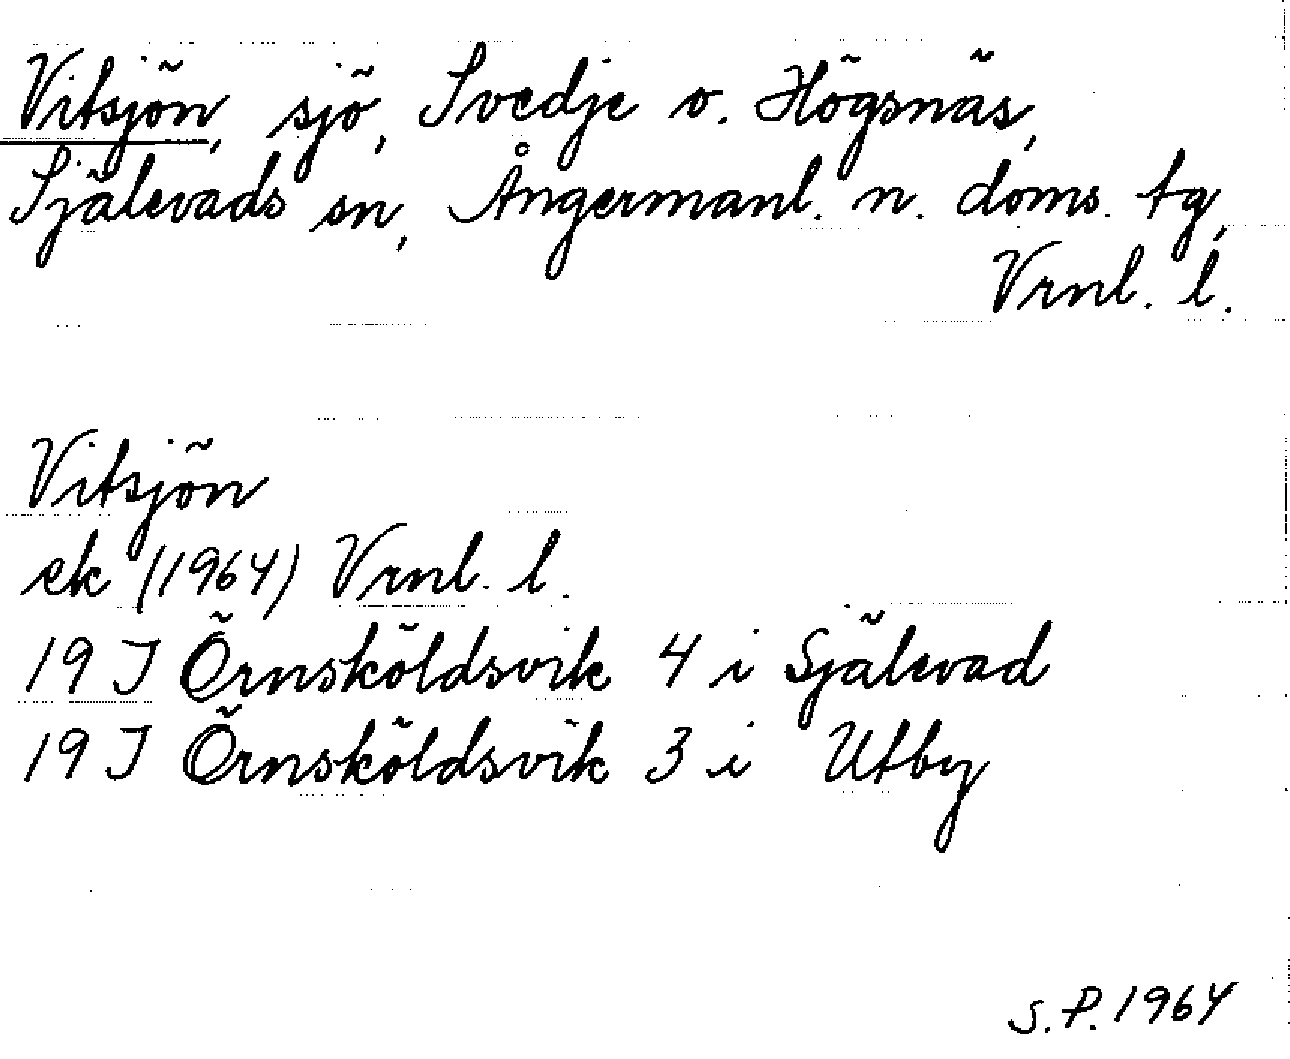 Vitsjön, sjö, Svedje o. Högsnäs,
Själevads sn, Ångermanl. n. doms. tg,
Vrnl. l.
Vitsjön
ek (1964) Vrnl. l.
19 J Örnsköldsvik 4 i Själevad
19 J Örnsköldsvik 3 i Utby
S. P. 1964